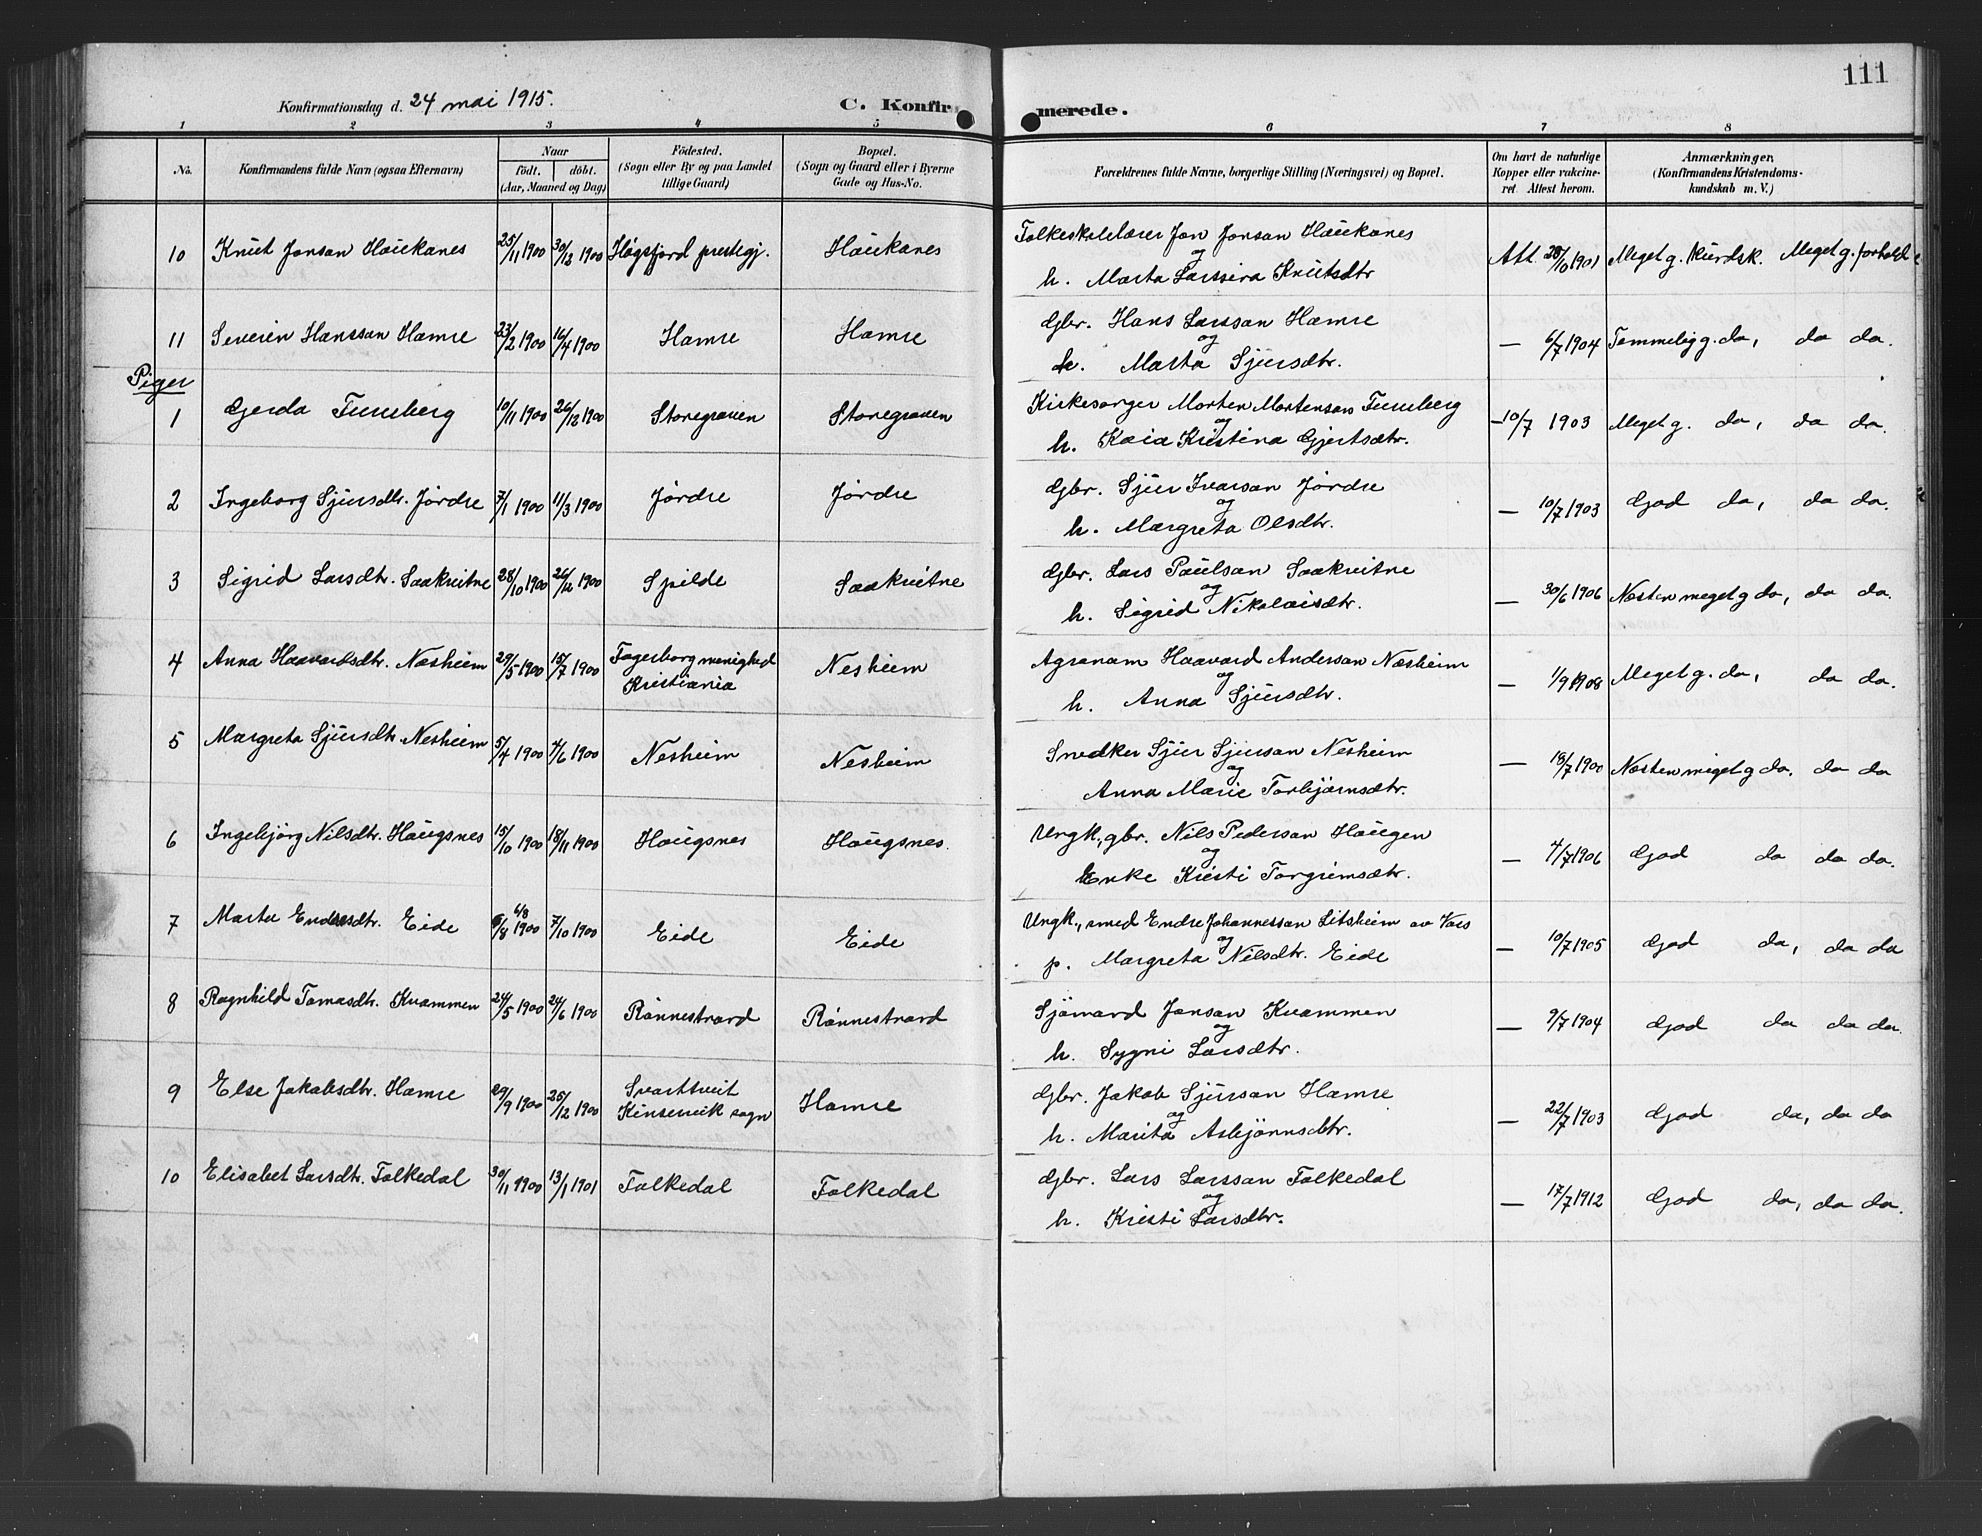 111
Konfirmationsdag d. 24 mai 1915.
C. Konfirmerede.
1 2 3 4 5 6 7 8
No.
Konfirmandens fulde Navn (ogsaa Efternavn)
Naar
født. døbt.
(Aar, Maaned og Dag)
Fødested.
(Sogn eller By og paa Landet
tillige Gaard)
Bopæl.
(Sogn og Gaard eller i Byerne
Gade og Hus-No.
Forældrenes fulde Navne, borgerlige Stilling (Næringsvei) og Bopæl.
Om havt de naturlige
Kopper eller vakcine-
ret Attest herom.
Anmærkninger.
(Konfirmandens Kristendoms-
kundskab m. V.)
10 Knut Jonsan Haukanes 25/11 1900 30/12 1900 Høgsfjord prestegj. Haukanes Folkeskolelærer Jon Jonsan Haukanes
og
h. Marta Larsina Knutsdtr Att 28/10 1901 Meget g. kundsk. Meget g. forhold
11 Severin Hanssan Hamre 23/2 1900 16/4 1900 Hamre Hamre Gbr. Hans Larssan Hamre
og
h. Marta Sjursdtr. — 6/7 1904 Temmelig g. do, do do.
Piger
1 Gerda Tunsberg 10/11 1900 26/12 1900 Storegraven Storegraven Kirkesanger Morten Mortensan Tunsberg
og
h. Kaia Kristina Gjertsdtr. — 10/7 1903 Meget g. do, do do.
2 Ingeborg Sjursdtr. Jørdre 7/1 1900 11/3 1900 Jørdre Jørdre Gbr. Sjur Ivarsan Jørdre
og
h. Margreta Olsdtr. — 10/7 1903 God do, do do.
3 Sigrid Larsdtr. Saakvitne 28/10 1900 26/12 1900 Spilde Saakvitne Gbr. Lars Paulsan Saakvitne
og
h. Sigrid Nikolaisdtr. — 30/6 1906 Næsten meget g do, do do.
4 Anna Haavardsdtr. Næsheim 29/5 1900 15/7 1900 Fagerborg menighed
Kristiania Nesheim Agronom Haavard Andersan Næsheim
og
h. Anna Sjursdtr. — 1/9 1908 Meget g. do, do do.
5 Margreta Sjursdtr. Nesheim 5/4 1900 4/6 1900 Nesheim Nesheim Snedker Sjur Sjursan Nesheim
og
Anna Marie Torbjørnsdtr. — 18/7 1900 Næsten meget g do, do do
6 Ingebjørg Nilsdtr. Haugsnes 15/10 1900 18/11 1900 Haugsnes Haugsnes. Ungk., gbr. Nils Pedersan Haugen
og
Enke Kristi Torgrimsdtr. — 4/7 1906 God do do do.
7 Marta Endresdtr. Eide 6/8 6/8 1900 7/10 1900 Eide Eide Ungk., smed Endre Johannessan Litsheim av Vors
og
p. Margreta Nilsdtr. Eide — 10/7 1905 God do, do do
8 Ragnhild Tomasdtr. Kvammen 24/5 1900 24/6 1900 Rønnestrand Rønnestrand Sjømand Jonsan Kvammen
og
h. Sygni Larsdtr. — 9/7 1904 God do do do.
9 Else Jakobsdtr. Hamre 29/9 1900 25/12 1900 Svartveit
Kinservik sogn Hamre Gbr. Jakob Sjursan Hamre
og
h. Marita Asbjørnsdtr. — 22/7 1903 God do, do do
10 Elisabet Larsdtr. Folkedal 30/11 1900 13/1 1901 Folkedal Folkedal Gbr. Lars Larssan Folkedal
og
h. Kristi Larsdtr. — 17/7 1912 God do, do do.